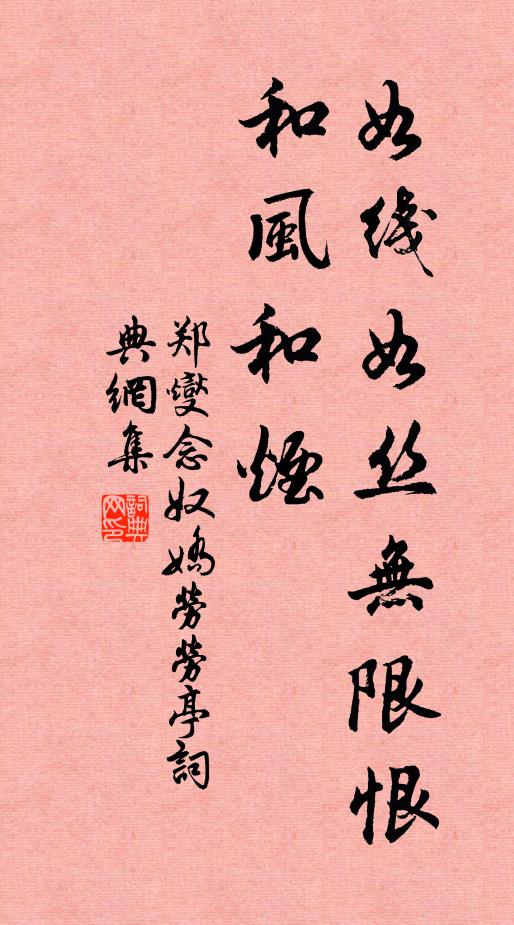 如綫如丝無限恨
和風和煙
郑燮念奴嬌勞勞亭詞
典網集
詞典
网印